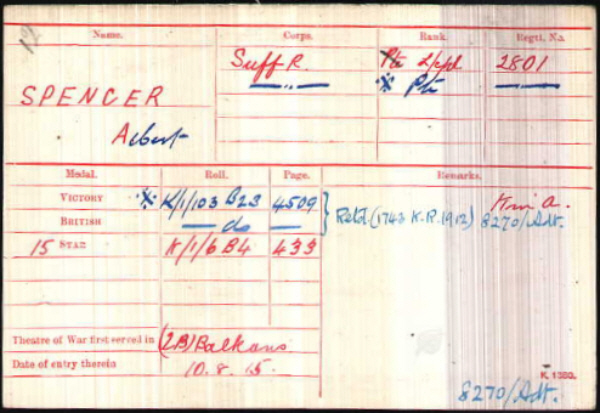 Name. Corps. Rank. Regtl. No.
Suff R. Pte L/cpl 2801
SPENCER —„— * Pte ——
Albert
Medal. Roll. Page. Remarks.
VICTORY * K/1/103 B23 4509
BRITISH — do — Retd. (1743 K.R. 1912) 8270/Adt.
15 STAR K/1/6 B4 433
Theatre of War first served in (2B) Balkans
Date of entry therein 10.8.15.
K. 1380.
8270/Adt.